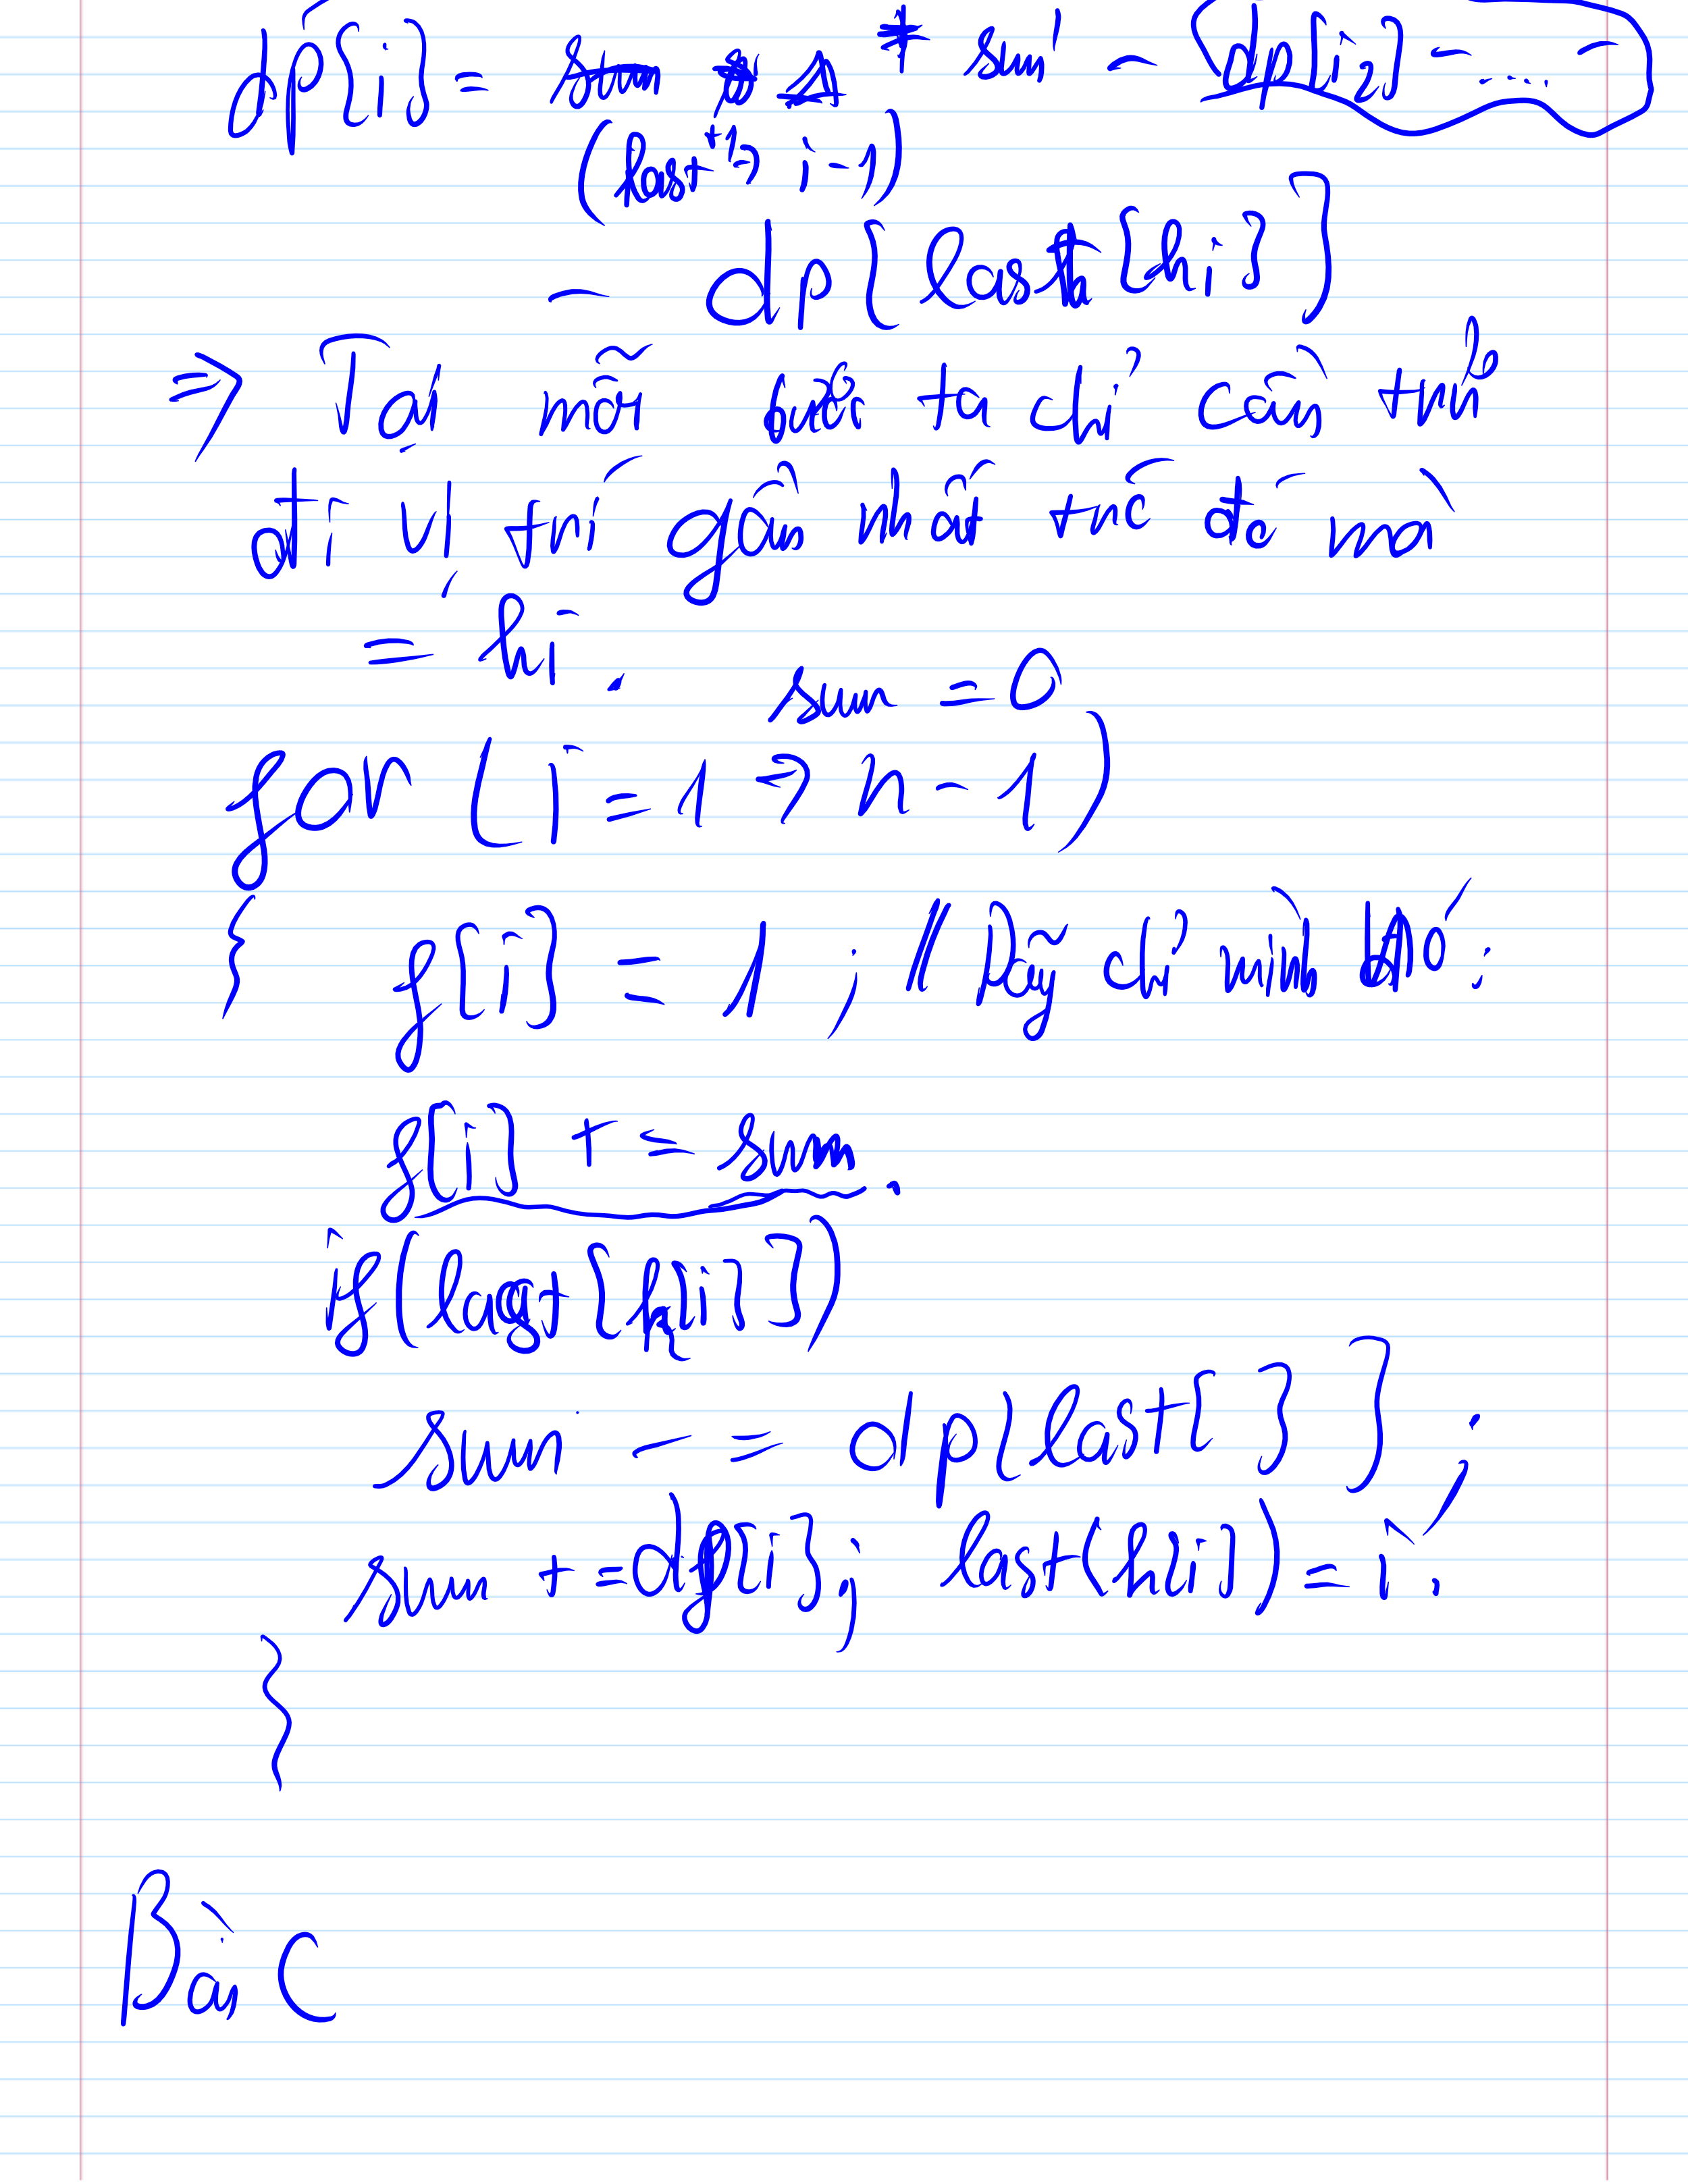 dp[i] = * sum - dp[j] - ... -
(last+1 → i-1)
- dp[last[hi]]
⇒ Tại mỗi bước ta chỉ cần tính
đi vị trí gần nhất trước đó mà
= hi.
sum = 0
for (i = 1 → n - 1)
{
f[i] = 1 ; // Dãy chỉ mình nó :
f[i] += sum.
if(last[h[i]])
sum -= dp[last[ ]] ;
sum += dp[i]; last(h[i]) = i ;
}
Bài C